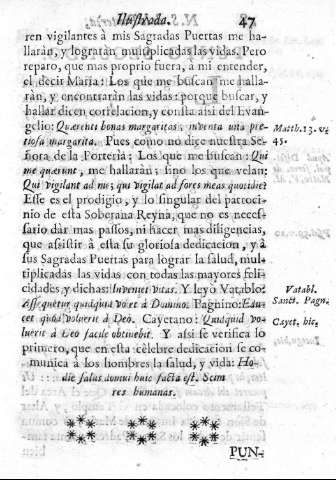 Ilustrada. 47
ren vigilantes à mis Sagradas Puertas me ha-
llaràn, y lograràn multiplicadas las vidas. Pero
reparo, que mas proprio fuera, à mi entender,
el decir Maria: Los que me buscan me halla-
ràn, y encontraràn las vidas: porque buscar, y
hallar dicen correlacion, y consta assi del Evan-
gelio: Quærenti bonas margaritas, inventa una pre-
tiosa margarita. Pues como no dice nuestra Se-
ñora de la Porteria: Los que me buscan: Qui
me quærunt, me hallaràn; sino los que velan:
Qui vigilant ad me; qui vigilat ad fores meas quotidie?
Esse es el prodigio, y lo singular del patroci-
nio de esta Soberana Reyna, que no es neces-
sario dar mas passos, ni hacer mas diligencias,
que assistir à esta su gloriosa dedicacion, y à
sus Sagradas Puertas para lograr la salud, mul-
tiplicadas las vidas con todas las mayores feli-
cidades, y dichas: Inveniet vitas. Y leyò Vatablo:
Assequetur quidquid volet à Domino. Pagnino: Edu-
cet quod voluerit à Deo. Cayetano: Quidquid vo-
luerit à Deo facile obtinebit. Y assi se verifica lo
primero, que en esta cèlebre dedicacion se co-
munica à los hombres la salud, y vida: Ho-
die salus domui huic facta est. Scim
res humanas.
Matth. 13. v.
45.
Vatabl.
Sanct. Pagn.
Cayet. hic.
PUN-